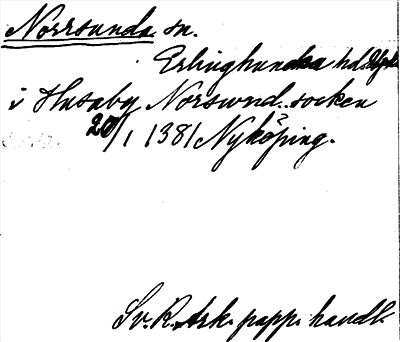 Norrsunda sn.
Erlinghundra hd.
i Husaby Norswnd. socken
20/1 1381 Nyköping.
Sv. R. Ark. papp. handl.